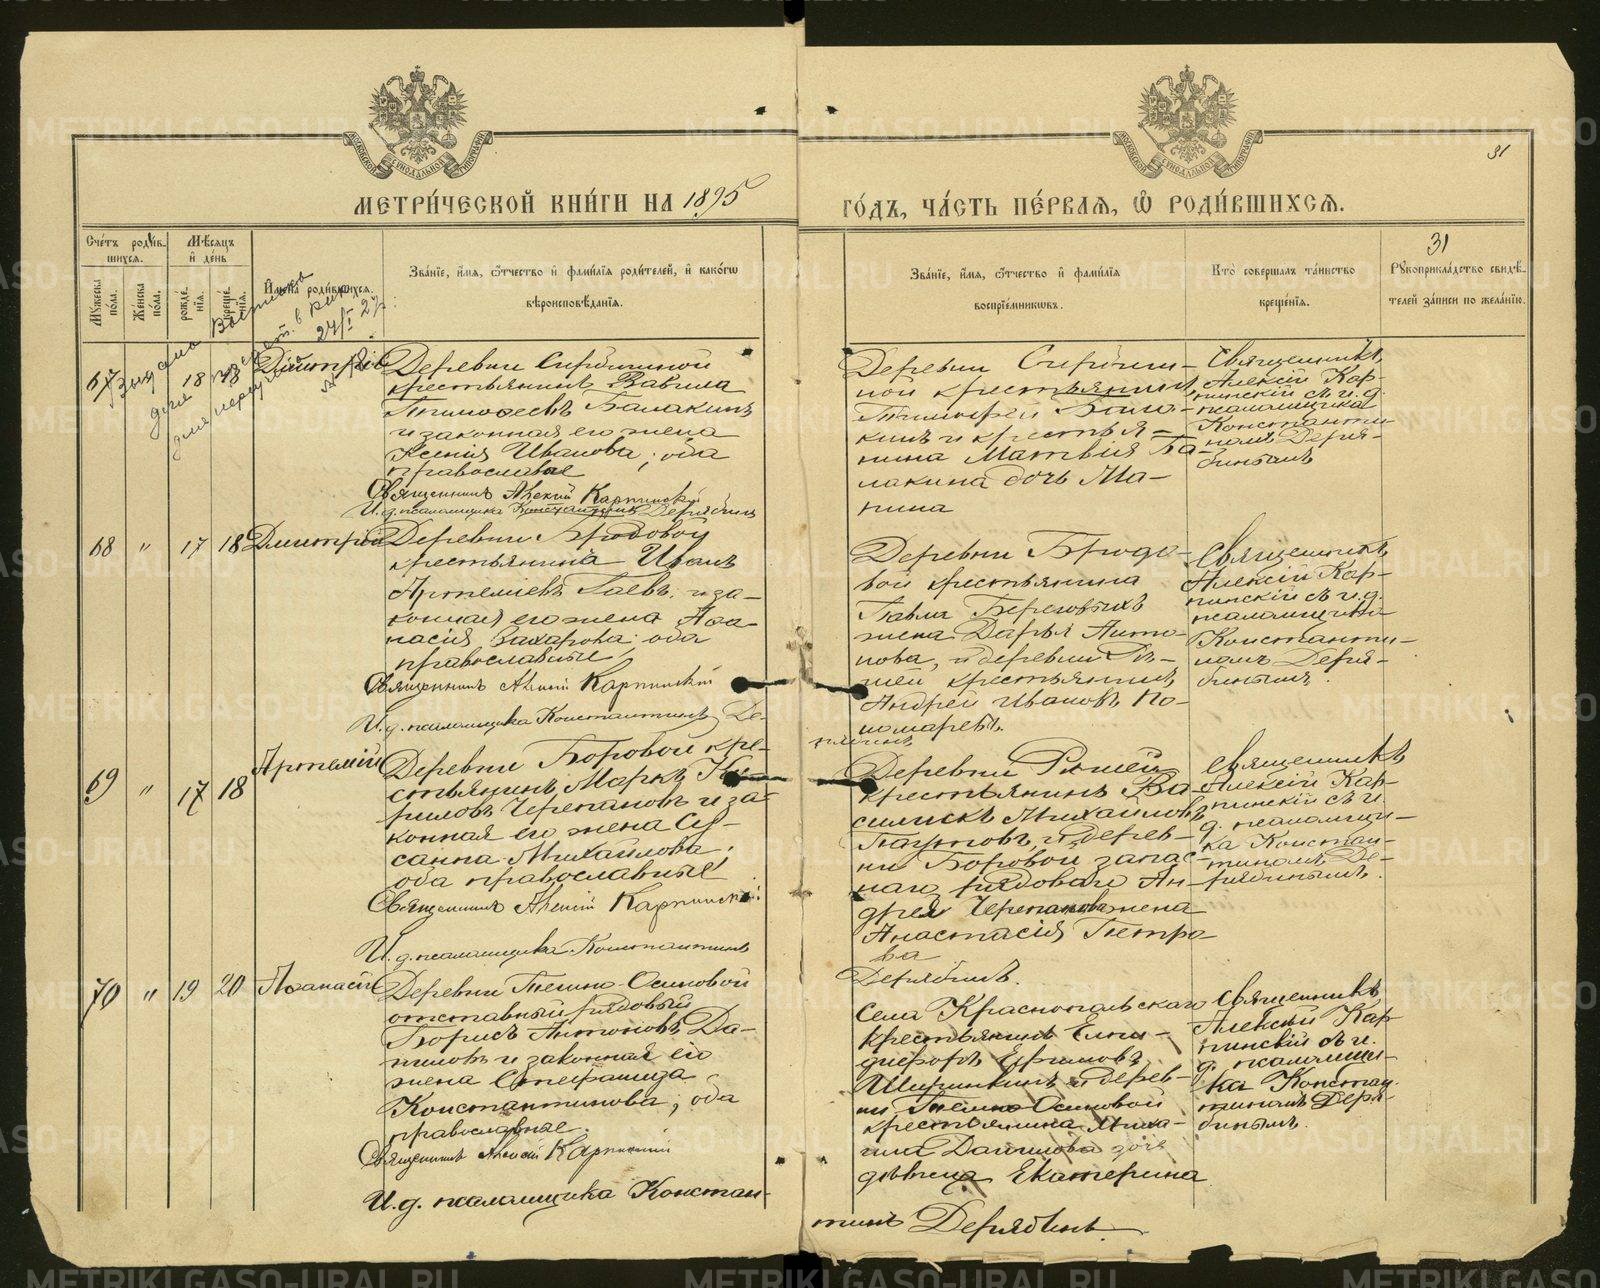 МЕТРИ́ЧЕСКОЙ КНИ́ГИ НА 1895
ГО́ДЪ, ЧА́СТЬ ПЕ́РВАЯ, Ѽ РОДИ́ВШИХСЯ.
31
31
Сче́тъ роди́в-
шихся.
Мѣ́сяцъ
и҆ де́нь
Мꙋ́жеска
по́ла.
Же́нска
по́ла.
рожде́-
нїѧ.
креще́-
нїѧ.
И҆мена̀ роди́вшихся.
Зва́нїе, и҆́мѧ, ѻ҆́тчество и҆ фами́лїѧ роди́телей, и҆ како́гѡ
вѣроисповѣ́данїѧ.
Зва́нїе, и҆́мѧ, ѻ҆́тчество и҆ фами́лїѧ
воспрїе́мникѡвъ.
Кто̀ соверша́лъ та́инство
креще́нїѧ.
Рꙋкоприкла́дство свидѣ́-
телей за́писи по жела́нїю.
67
18
18
Димитрій
Деревни
крестьянинъ Вавила
Тимоѳеевъ Балакинъ
и законная его жена
Ксенія Иванова; оба
православные
Священникъ Алексій Карпинскій
И. д. псаломщика Константинъ Дерябинъ
Деревни
ной крестьянинъ
Тимоѳей Бала-
кинъ и крестья-
нина Матвія Ба-
лакина дочь Ма-
рина
Священникъ
Алексій Кар-
пинскій съ и. д.
псаломщика
Константи-
номъ Деря-
бинымъ
68 " 17 18 Димитрій
Деревни Бродовой
крестьянина Иванъ
Артемьевъ Гаевъ и за-
конная его жена Аѳа-
насія Захарова; оба
православные
Священникъ Алексій Карпинскій
И. д. псаломщика Константинъ Де-
рябинъ
Деревни Бродо-
вой крестьянина
Павла Береговыхъ
жена Дарья Анто-
нова, и деревни Ря-
шей крестьянинъ
Андрей Ивановъ По-
номаревъ.
Священникъ
Алексій Кар-
пинскій съ и. д.
псаломщика
Константи-
номъ Деря-
бинымъ.
69 " 17 18
Артемій
Деревни Боровой кре-
стьянинъ Маркъ Ки-
риловъ Черепановъ и за-
конная его жена Су-
санна Михаилова;
оба православные
Священникъ Алексій Карпинскій
И. д. псаломщика Константинъ
Дерябинъ.
Деревни Ряшей
крестьянинъ Ва-
силискъ Михаиловъ
Паутовъ, и дерев-
ни Боровой запас-
наго рядоваго Ан-
дрея Черепанова жена
Анастасія Петро-
ва
Священникъ
Алексій Кар-
пинскій съ и.
д. псаломщи-
ка Констан-
тиномъ Де-
рябинымъ.
70 " 19 20 Аѳанасій
Деревни Темно-Осиновой
отставный рядовый
Борисъ Антоновъ Да-
ниловъ и законная его
жена Стефанида
Константинова; оба
православные.
Священникъ Алексій Карпинскій
И. д. псаломщика Констан-
тинъ Дерябинъ.
Села Краснопольскаго
крестьянинъ Елпи-
дифоръ Ефимовъ
и дерев-
ни Темно-Осиновой
крестьянина Миха-
ила Данилова дочь
дѣвица Екатерина
Священникъ
Алексій Кар-
пинскій съ и.
д. псаломщи-
ка Констан-
тиномъ Деря-
бинымъ.
METRIKI.GASO-URAL.RU